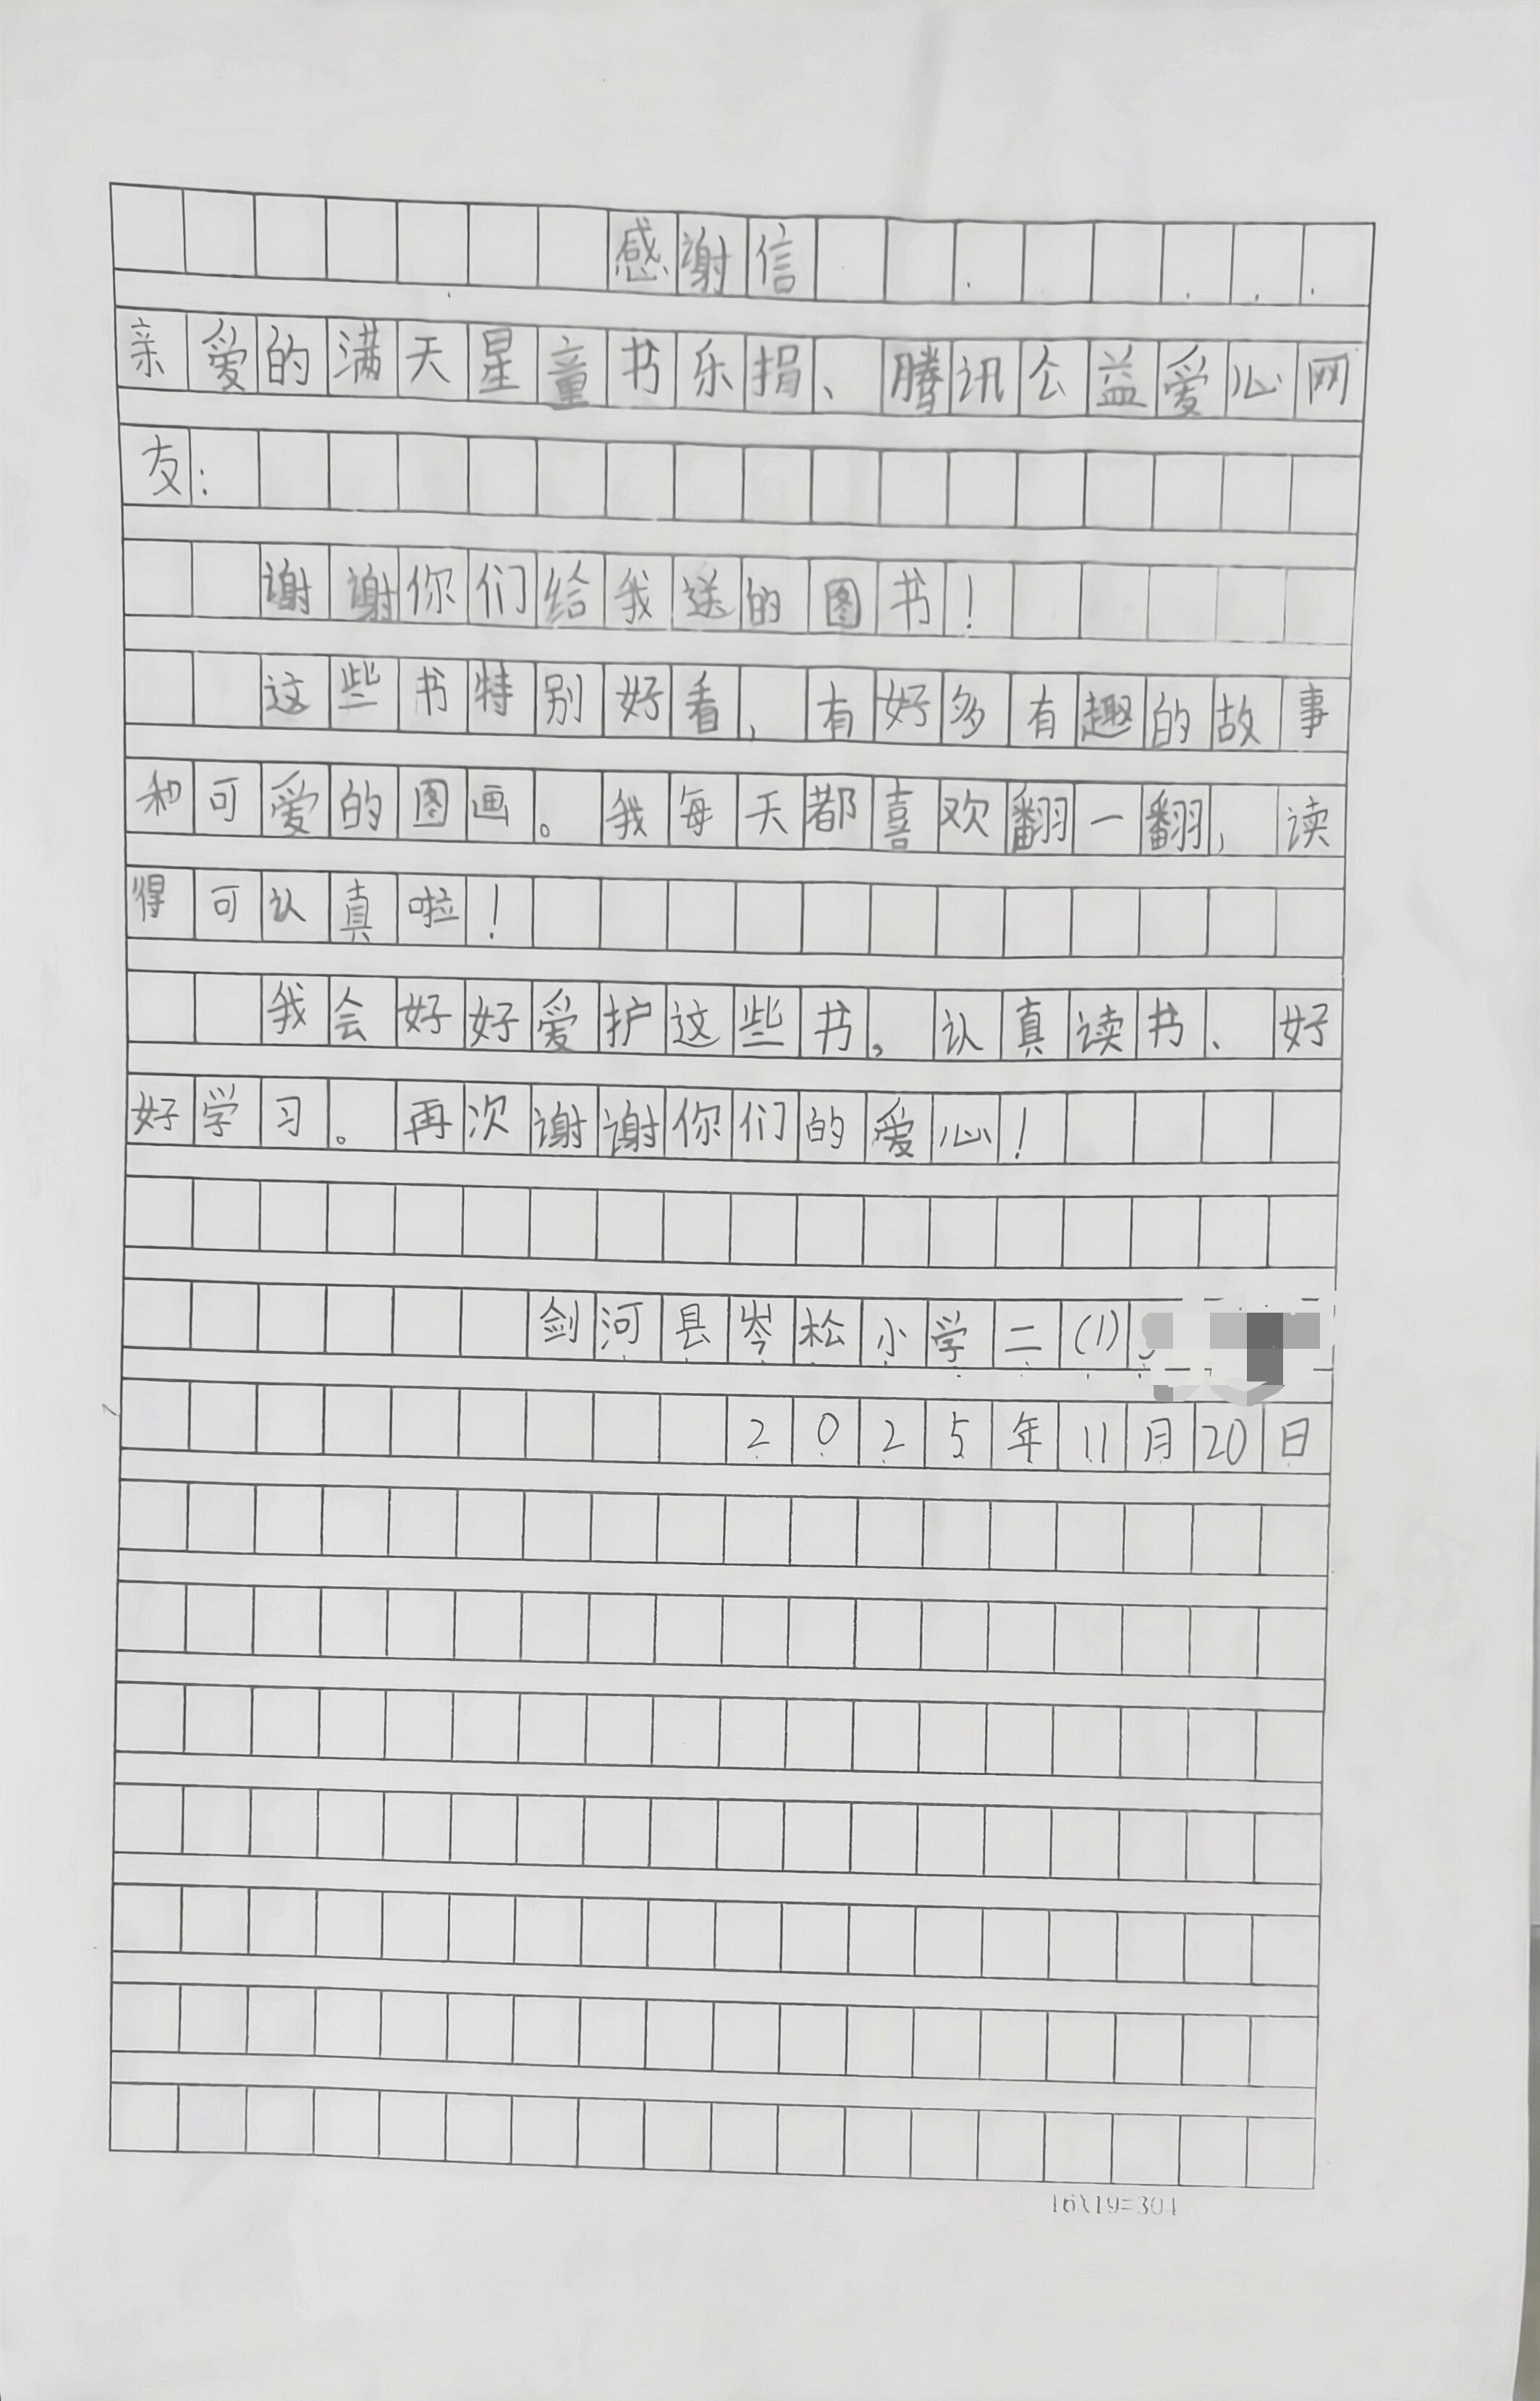 感谢信
亲爱的满天星童书乐捐、腾讯公益爱心网
友：
谢谢你们给我送的图书！
这些书特别好看，有好多有趣的故事
和可爱的图画。我每天都喜欢翻一翻，读
得可认真啦！
我会好好爱护这些书，认真读书、好
好学习。再次谢谢你们的爱心！
剑河县岑松小学二(1)
2025年11月20日
16×19=304